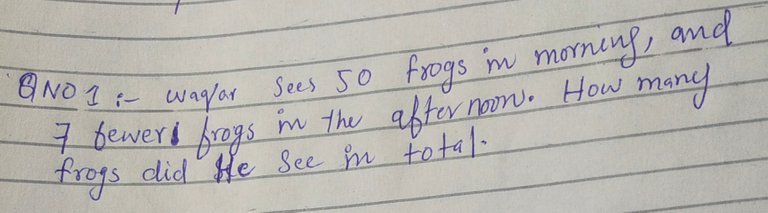 QNO 1 :- waqar sees 50 frogs in morning, and
7 fewer frogs in the afternoon. How many
frogs did He See in total.